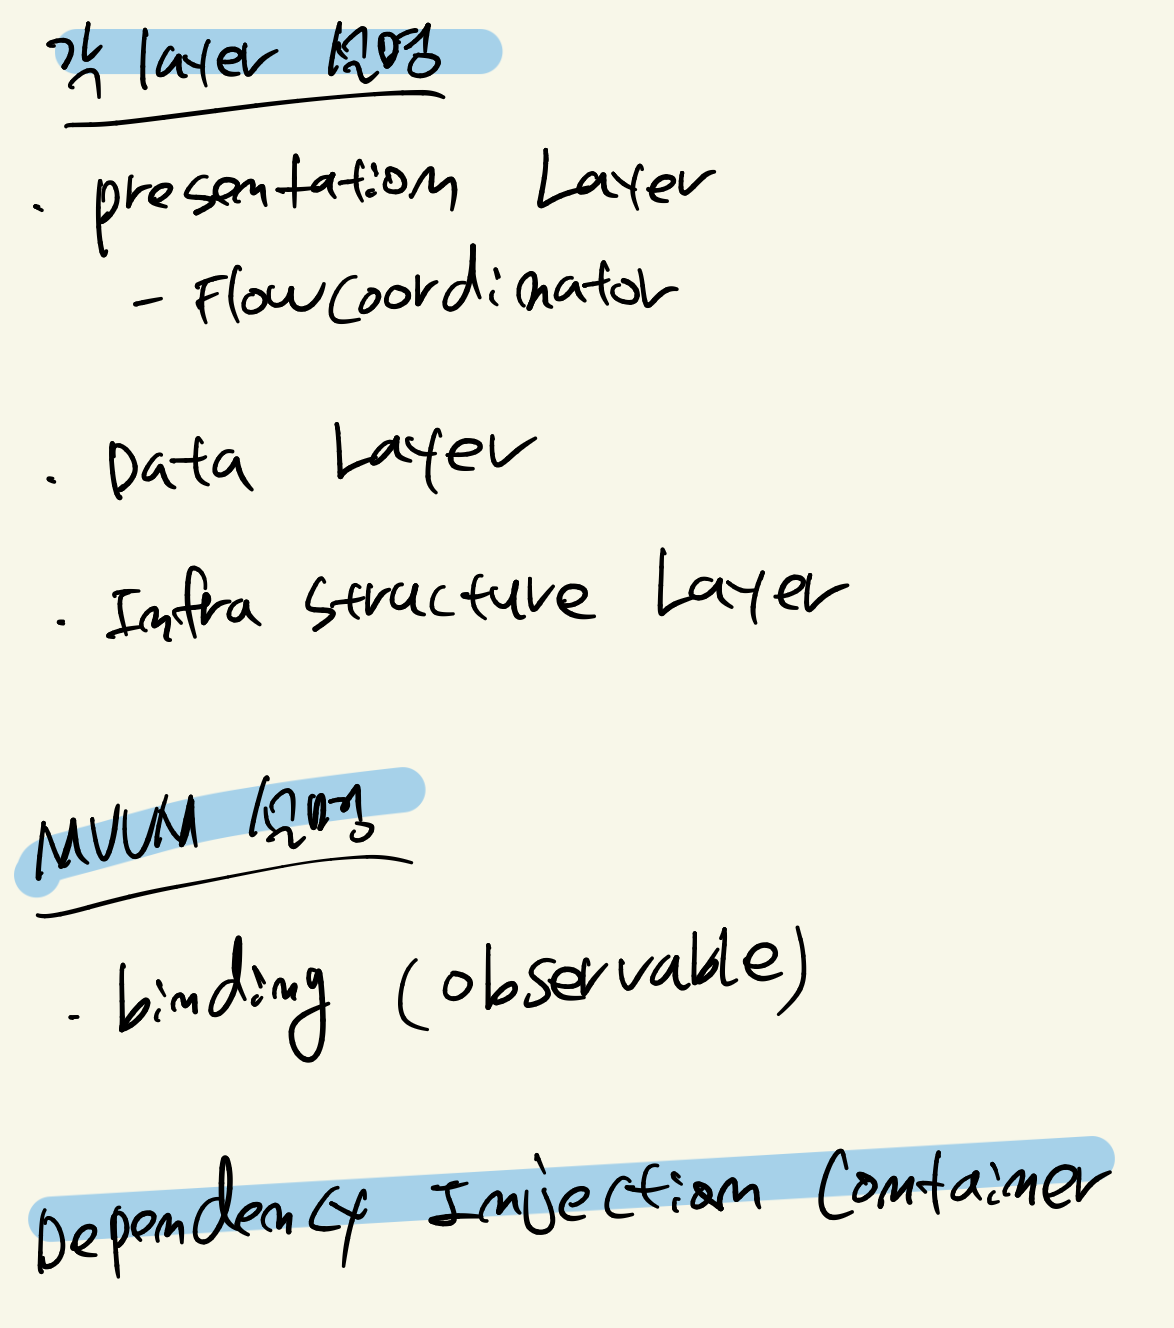 각 layer 설명
· presentation Layer
- FlowCoordinator
· Data Layer
· Infra structure Layer
MVVM 설명
- binding (observable)
Dependency Injection Container